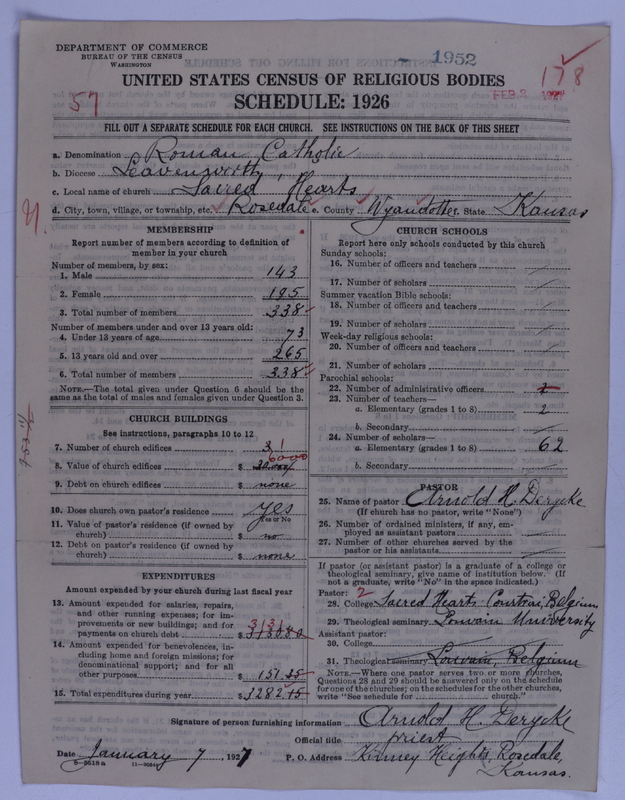 DEPARTMENT OF COMMERCE
BUREAU OF THE CENSUS
WASHINGTON
1952
178
FEB 2 1927
57
UNITED STATES CENSUS OF RELIGIOUS BODIES
SCHEDULE: 1926
FILL OUT A SEPARATE SCHEDULE FOR EACH CHURCH. SEE INSTRUCTIONS ON THE BACK OF THIS SHEET
a. Denomination Roman Catholic
b. Diocese Leavenworth
c. Local name of church Sacred Hearts
d. City, town, village, or township, etc. Rosedale e. County Wyandotte f. State Kansas
MEMBERSHIP
Report number of members according to definition of
member in your church
Number of members, by sex:
1. Male 143
2. Female 195
3. Total number of members 338
Number of members under and over 13 years old:
4. Under 13 years of age 73
5. 13 years old and over 265
6. Total number of members 338
NOTE.—The total given under Question 6 should be
the same as the total of males and females given under Question 3.
CHURCH BUILDINGS
See instructions, paragraphs 10 to 12
7. Number of church edifices 3 1
8. Value of church edifices $ 6000
9. Debt on church edifices $ none
10. Does church own pastor's residence yes
Yes or No
11. Value of pastor's residence (if owned by
church) $ no
12. Debt on pastor's residence (if owned by
church) $ none
EXPENDITURES
Amount expended by your church during last fiscal year
13. Amount expended for salaries, repairs,
and other running expenses; for im-
provements or new buildings; and for
payments on church debt $ 3130.80
3131
14. Amount expended for benevolences, in-
cluding home and foreign missions; for
denominational support; and for all
other purposes $ 151.35
15. Total expenditures during year $ 3282.15
CHURCH SCHOOLS
Report here only schools conducted by this church
Sunday schools:
16. Number of officers and teachers
17. Number of scholars
Summer vacation Bible schools:
18. Number of officers and teachers
19. Number of scholars
Week-day religious schools:
20. Number of officers and teachers
21. Number of scholars
Parochial schools:
22. Number of administrative officers 1
23. Number of teachers—
a. Elementary (grades 1 to 8) 2
b. Secondary
24. Number of scholars—
a. Elementary (grades 1 to 8) 62
b. Secondary
PASTOR
25. Name of pastor Arnold H. Derycke
(If church has no pastor, write "None")
26. Number of ordained ministers, if any, em-
ployed as assistant pastors
27. Number of other churches served by the
pastor or his assistants
If pastor (or assistant pastor) is a graduate of a college or
theological seminary, give name of institution below. (If
not a graduate, write "No" in the space indicated.)
Pastor: 2
28. College Sacred Hearts Courtrai, Belgium
29. Theological seminary Louvain University
Assistant pastor:
30. College
31. Theological seminary Louvain, Belgium
NOTE.—Where one pastor serves two or more churches,
Questions 28 and 29 should be answered only on the schedule
for one of the churches; on the schedules for the other churches,
write "See schedule for church."
Signature of person furnishing information Arnold H. Derycke
Official title priest
Date January 7, 1927 P. O. Address Kinney Heights, Rosedale,
Kansas.
8—5518a